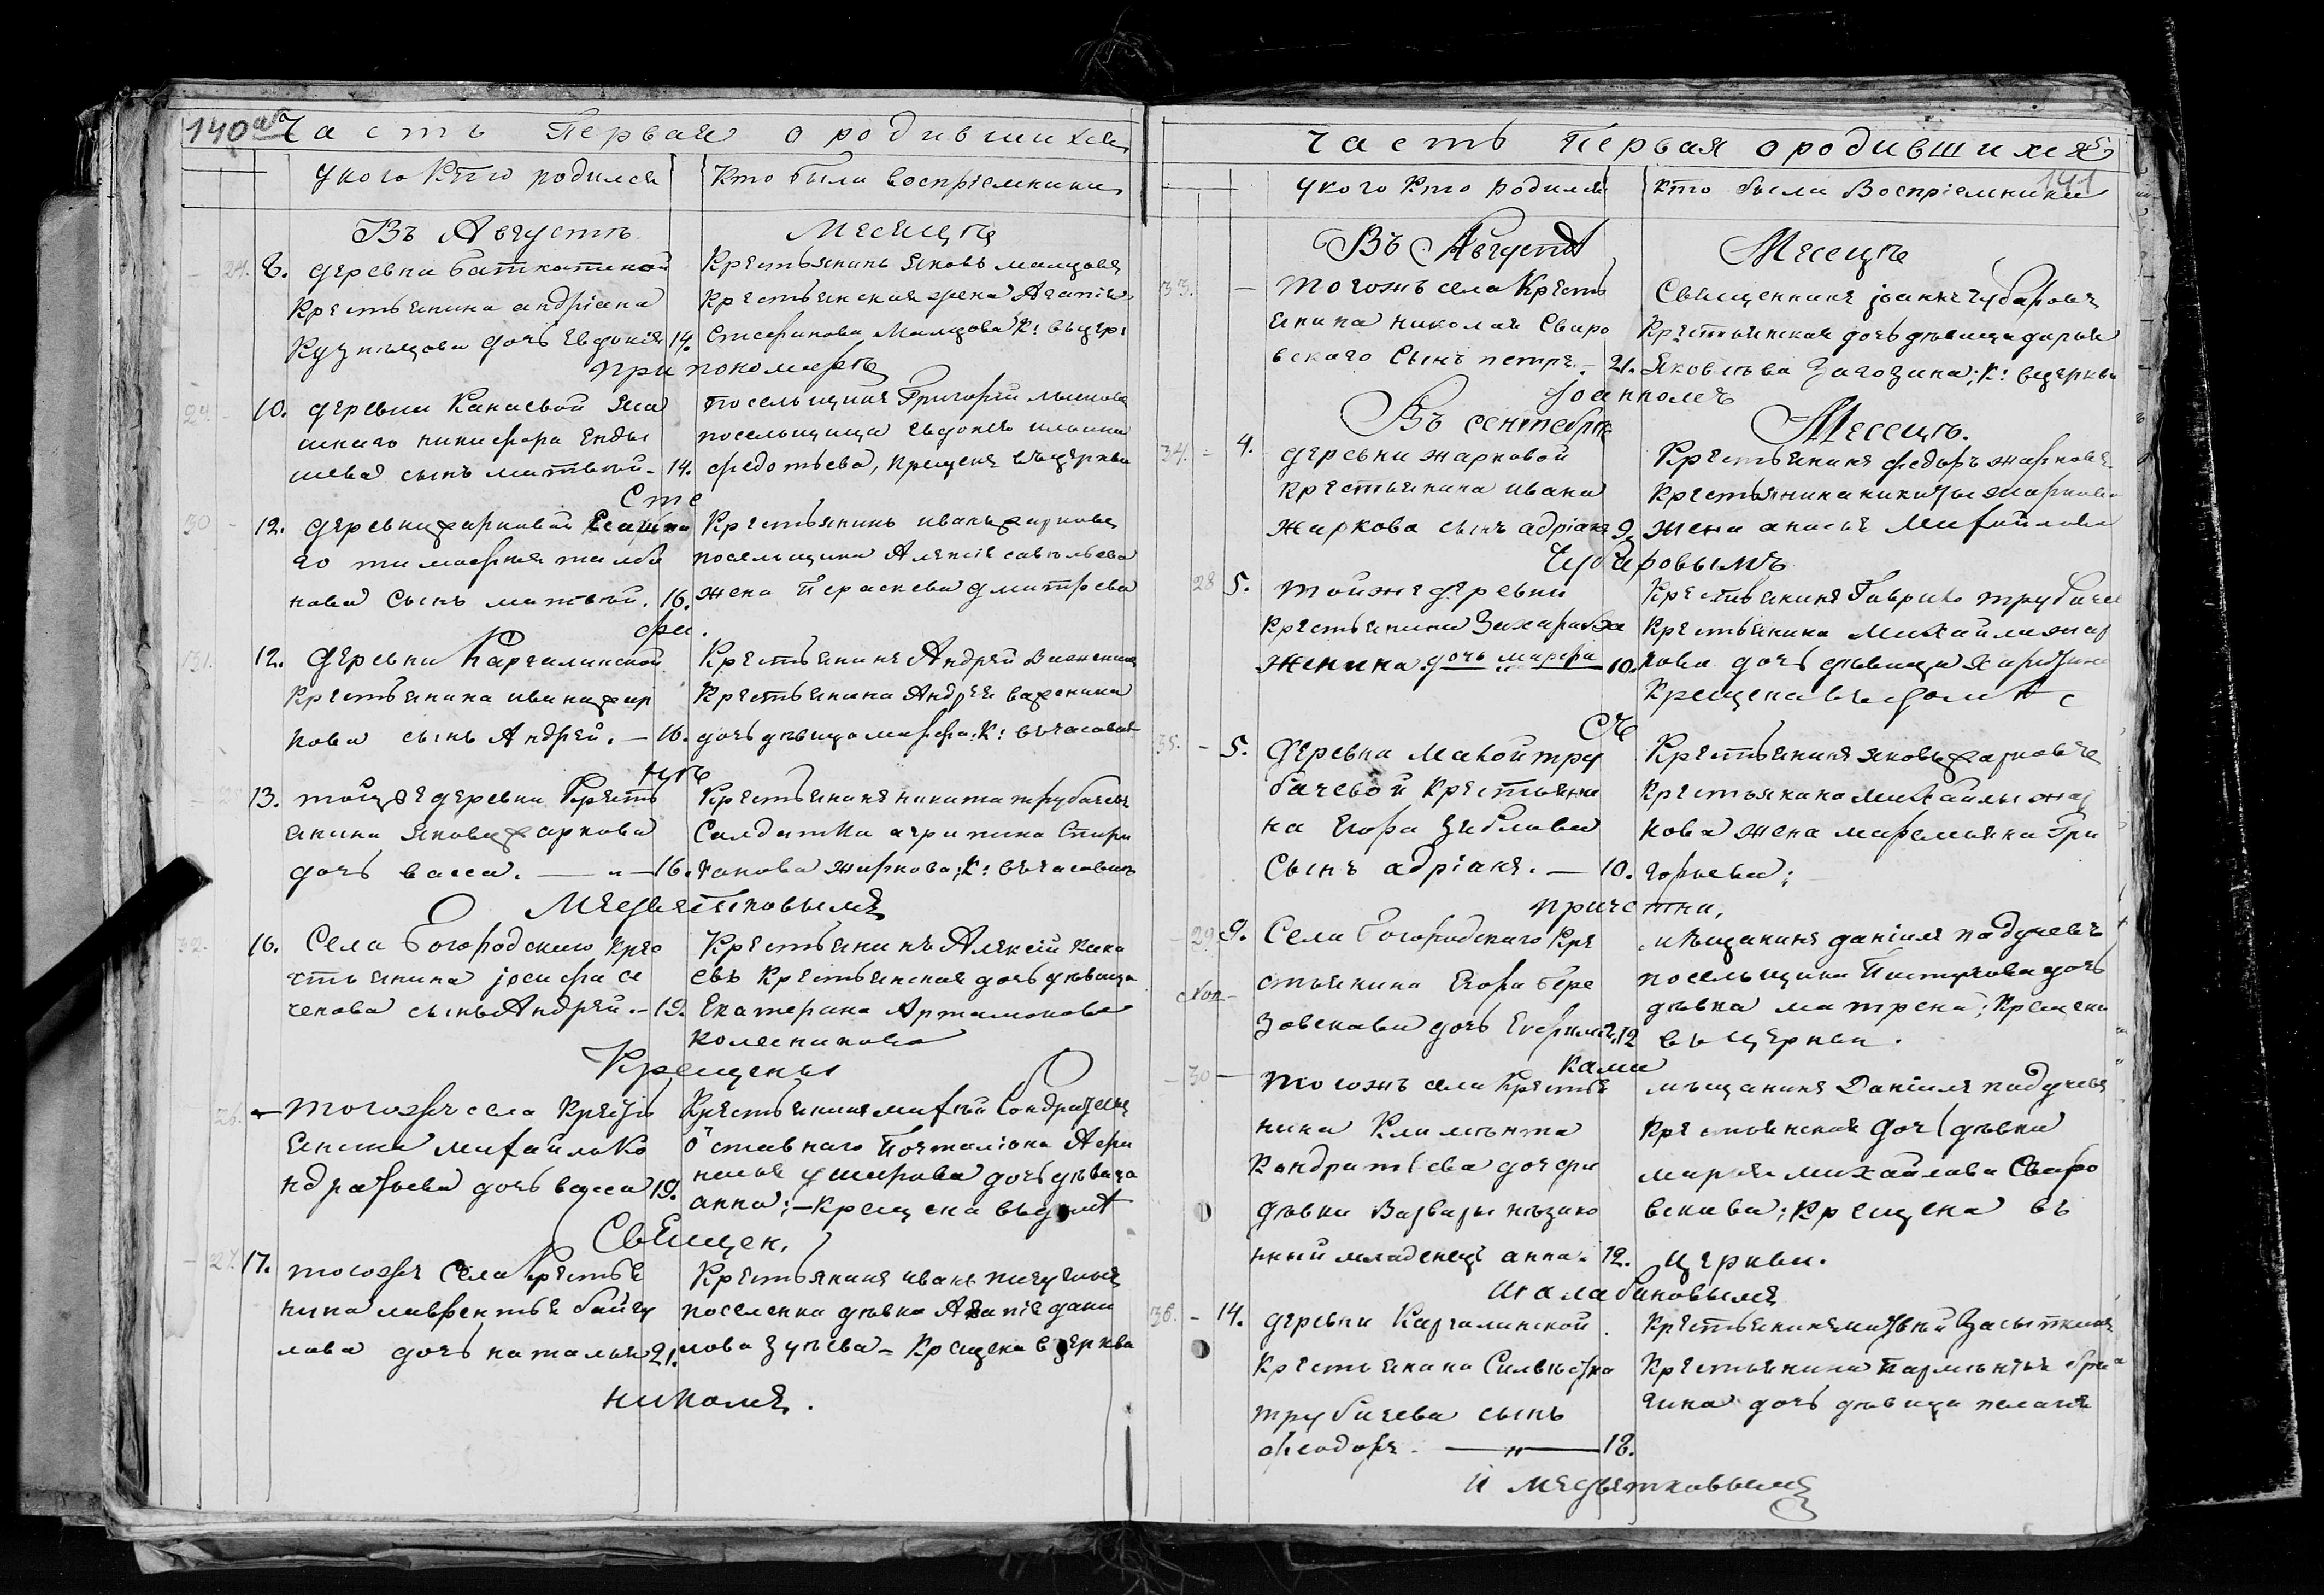 140 об
Часть Первая о родившихся
У кого Кто родился
Кто были воспріемники
Въ Августѣ
Месецѣ
8. деревни Баткатиной
Крестьянина андріана
Кузнецова дочь Евдокія 14.
Крестьянинъ Яковъ
Крестьянская жена Агапія
Стефанова К: въ цер:
при пономарѣ
29. 10. деревни Канаевой Яса
шнаго никифора Енды
шева сынъ матвѣй. 14.
посельщикъ Григорій
посельщица Евдокія ильина
федотьева, Крещенъ въ церкви
Сте
30 12. деревни жарковой Ясашна
го тимофея
нова Сынъ матвѣй. 16.
Крестьянинъ иванъ жарковъ
посельщика Алексія савельева
жена Параскева дмитрева
фи.
31. 12. деревни Каргалинской
Крестьянина ивана жар
кова сынъ Андрей. — 16.
Крестьянинъ Андрей
Крестьянина Андрея
дочь дѣвица марфа: К: въ часовнѣ
нѣ
13. той же деревни Кресть
янина Якова жаркова
дочь васса. — „ — 16.
Крестьянинъ никита трубачевъ
Салдатка агрипина Спири
донова жаркова; К: въ часовнѣ
Медвѣтковымъ
32. 16. Села Богородскаго Кре
стьянина іосифа се
ченова сынъ Андрей. — 19.
Крестьянинъ Алексій Кана
евъ Крестьянская дочь дѣвица
Екатерина Артамонова
Колесникова
Крещены
26. — Тогожъ села Кресть
янина михайла Ко
ндратьева дочь васса 19.
Крестьянинъ матвѣй Кондратьевъ
оставнаго Почталіона
дочь дѣвица
анна; — Крещена въ домѣ
Священ.
27. 17. тогоже Села Крестья
нина лаврентья
лова дочь наталья 21.
Крестьянинъ иванъ
поселенка дѣвка Агапія дани
лова зуева — Крещена в церкви
николя.
Часть Первая о родившихся
141
У кого Кто Родился
Кто были Воспріемники
Въ Августѣ
Месецѣ
33. — Тогожъ села Кресть
янина николая Сваро
вскаго Сынъ петръ. — 21.
Священникъ іоаннъ Чубаровъ
Крестьянская дочь дѣвица дарья
Яковлева Загозина; К: в церкви
іоанномъ
Въ сентебрѣ
Месецѣ.
34. 4. деревни жарковой
Крестьянина ивана
жаркова сынъ адріанъ 9.
Крестьянинъ федоръ жарковъ
Крестьянина никиты жаркова
жена анисья Михайлова
Чубаровымъ
28 5. Той же деревни
Крестьянина Захара Ба
женина дочь марфа 10.
Крестьянинъ Гаврило трубаче
Крестьянина Михайла жар
кова дочь дѣвица Харитина
Крещена въ домѣ
съ
35. 5. деревни Малой тру
бачевой Крестьяни
на Егора
Сынъ адріанъ. — 10.
Крестьянинъ яковъ жарковъ
Крестьянина михайлы жар
кова жена маремьяна Гри
горьева;
причетни,
29 9. Села Богородскаго Кре
стьянина Егора Бере
зовскова дочь 12
мѣщанинъ даніилъ падучевъ
посельщика дочь
дѣвка матрена; Крещена
въ церкви.
ками
30 — Тогожъ села Крестья
нина Климента
Кондратьева дочери
дѣвки Варвары незако
нный младенецъ анна. 12.
мѣщанинъ Даніилъ падучевъ
Крестьянская дочь дѣвка
марья михайлова Сваро
вскова; Крещена въ
церкви.
Шалабановымъ
36. — 14. деревни Каргалинской
Крестьянина Сильвестра
трубачева сынъ
феодоръ. — „ — 18.
Крестьянинъ матвѣй
Крестьянина Парментья
гина дочь дѣвица пелагѣя
и медвѣтковымъ